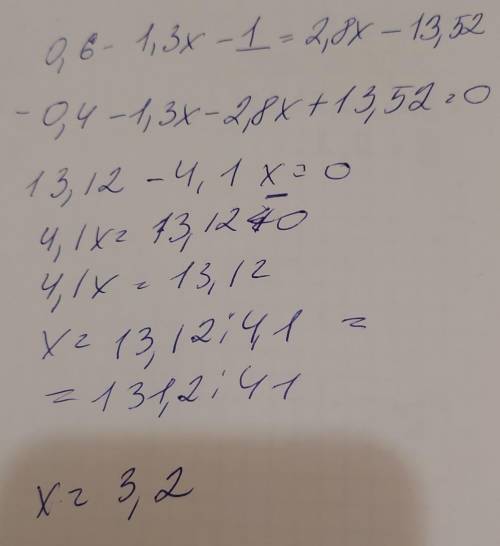 0,6 - 1,3x - 1 = 2,8x - 13,52
- 0,4 - 1,3x - 2,8x + 13,52 = 0
13,12 - 4,1 x = 0
4,1x = 13,12 + 0
4,1x = 13,12
x = 13,12 : 4,1 =
= 131,2 : 41
x = 3,2